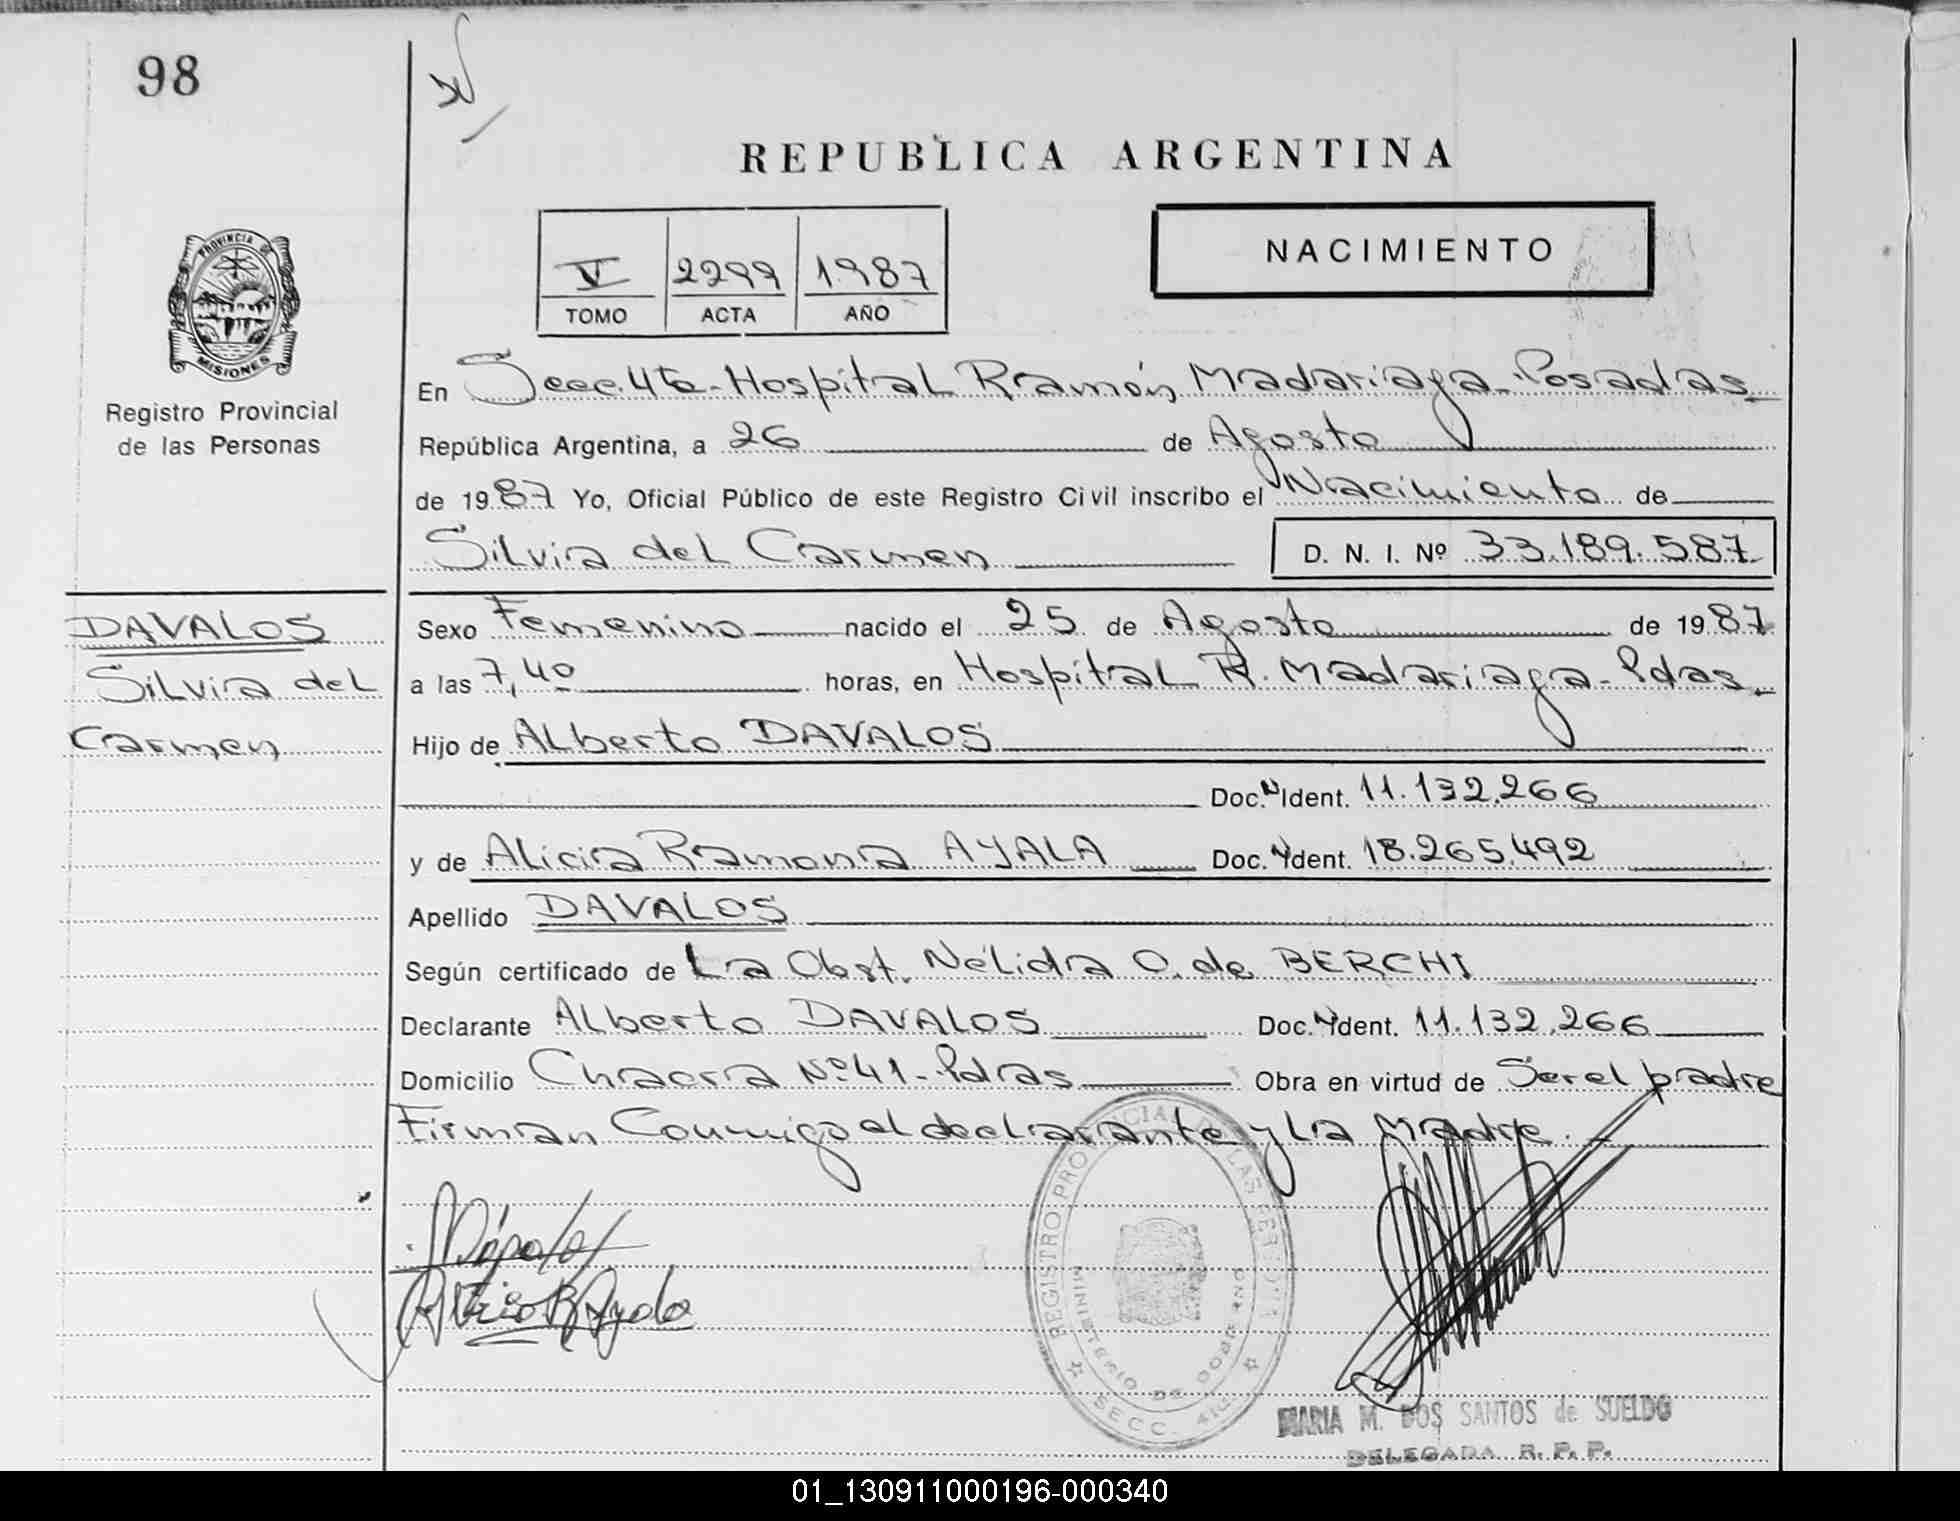 98
REPUBLICA ARGENTINA
V 2299 1987
TOMO ACTA AÑO
NACIMIENTO
PROVINCIA DE
MISIONES
Registro Provincial
de las Personas
En Secc. 4ta - Hospital Ramón Madariaga - Posadas
República Argentina, a 26 de Agosto
de 1987 Yo, Oficial Público de este Registro Civil inscribo el Nacimiento de
Silvia del Carmen D. N. I. Nº 33.189.587
DAVALOS
Silvia del
Carmen
Sexo Femenino nacido el 25 de Agosto de 1987
a las 7,40 horas, en Hospital R. Madariaga - Pdas
Hijo de Alberto DAVALOS
Doc. N Ident. 11.132.266
y de Alicia Ramona AYALA Doc. Ident. 18.265.492
Apellido DAVALOS
Según certificado de La Obst. Nélida O. de BERCHI
Declarante Alberto DAVALOS Doc. Ident. 11.132.266
Domicilio Chacra Nº 41 - Pdas Obra en virtud de Ser el padre
Firman Conmigo el declarante y La Madre.
Alicia R Ayala
REGISTRO PROVINCIAL DE LAS PERSONAS
MINISTERIO DE GOBIERNO
SECC. 4ta
MARIA M. DOS SANTOS de SUELDO
DELEGADA R. P. P.
01_130911000196-000340